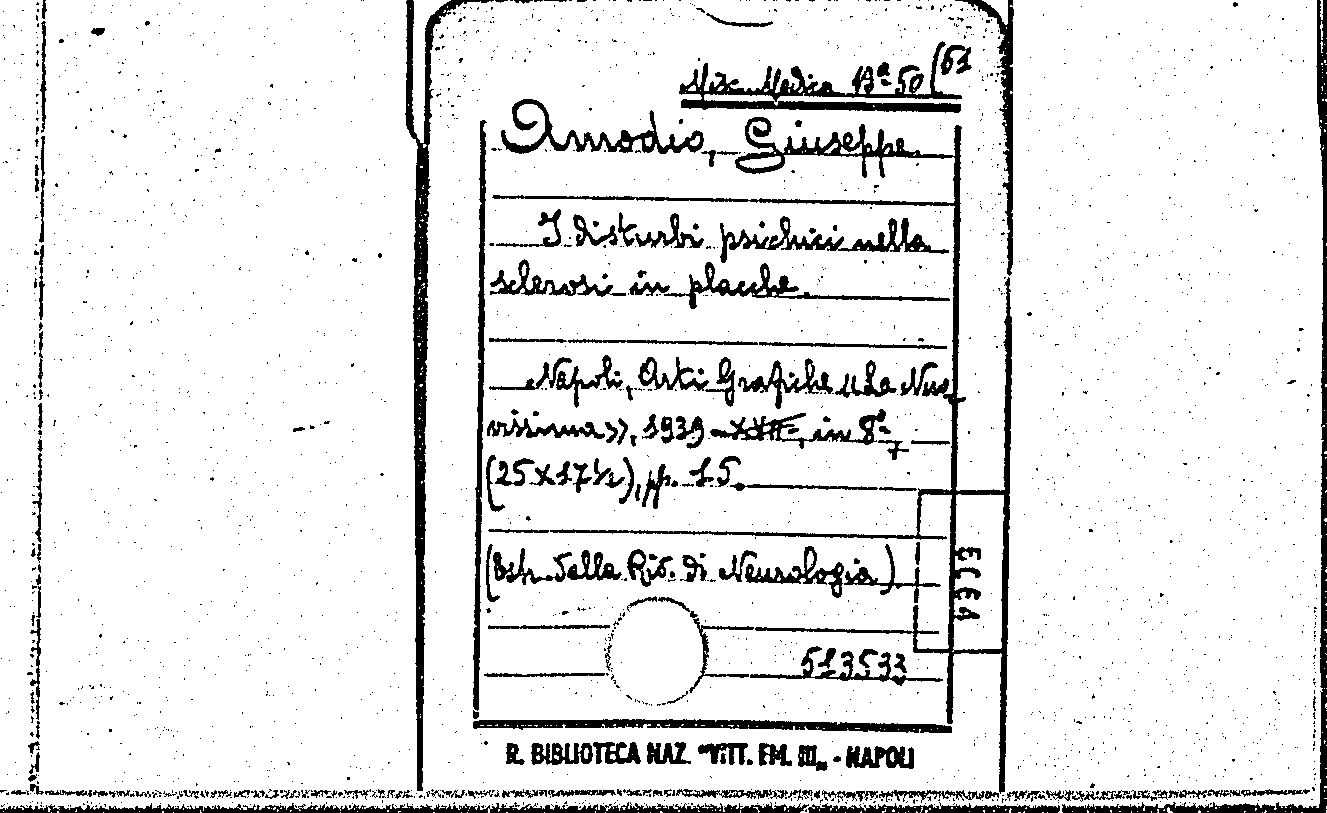 Misc. Medica Bª 50 (61
Amodio, Giuseppe.
I disturbi psichici nella
sclerosi in placche.
Napoli, Arti Grafiche «La Nuo-
vissima», 1939 - XVII -, in 8º
(25 x 17 ½), pp. 15.
(Estr. della Riv. di Neurologia)
513533
R. BIBLIOTECA NAZ. "VITT. EM. III„ - NAPOLI